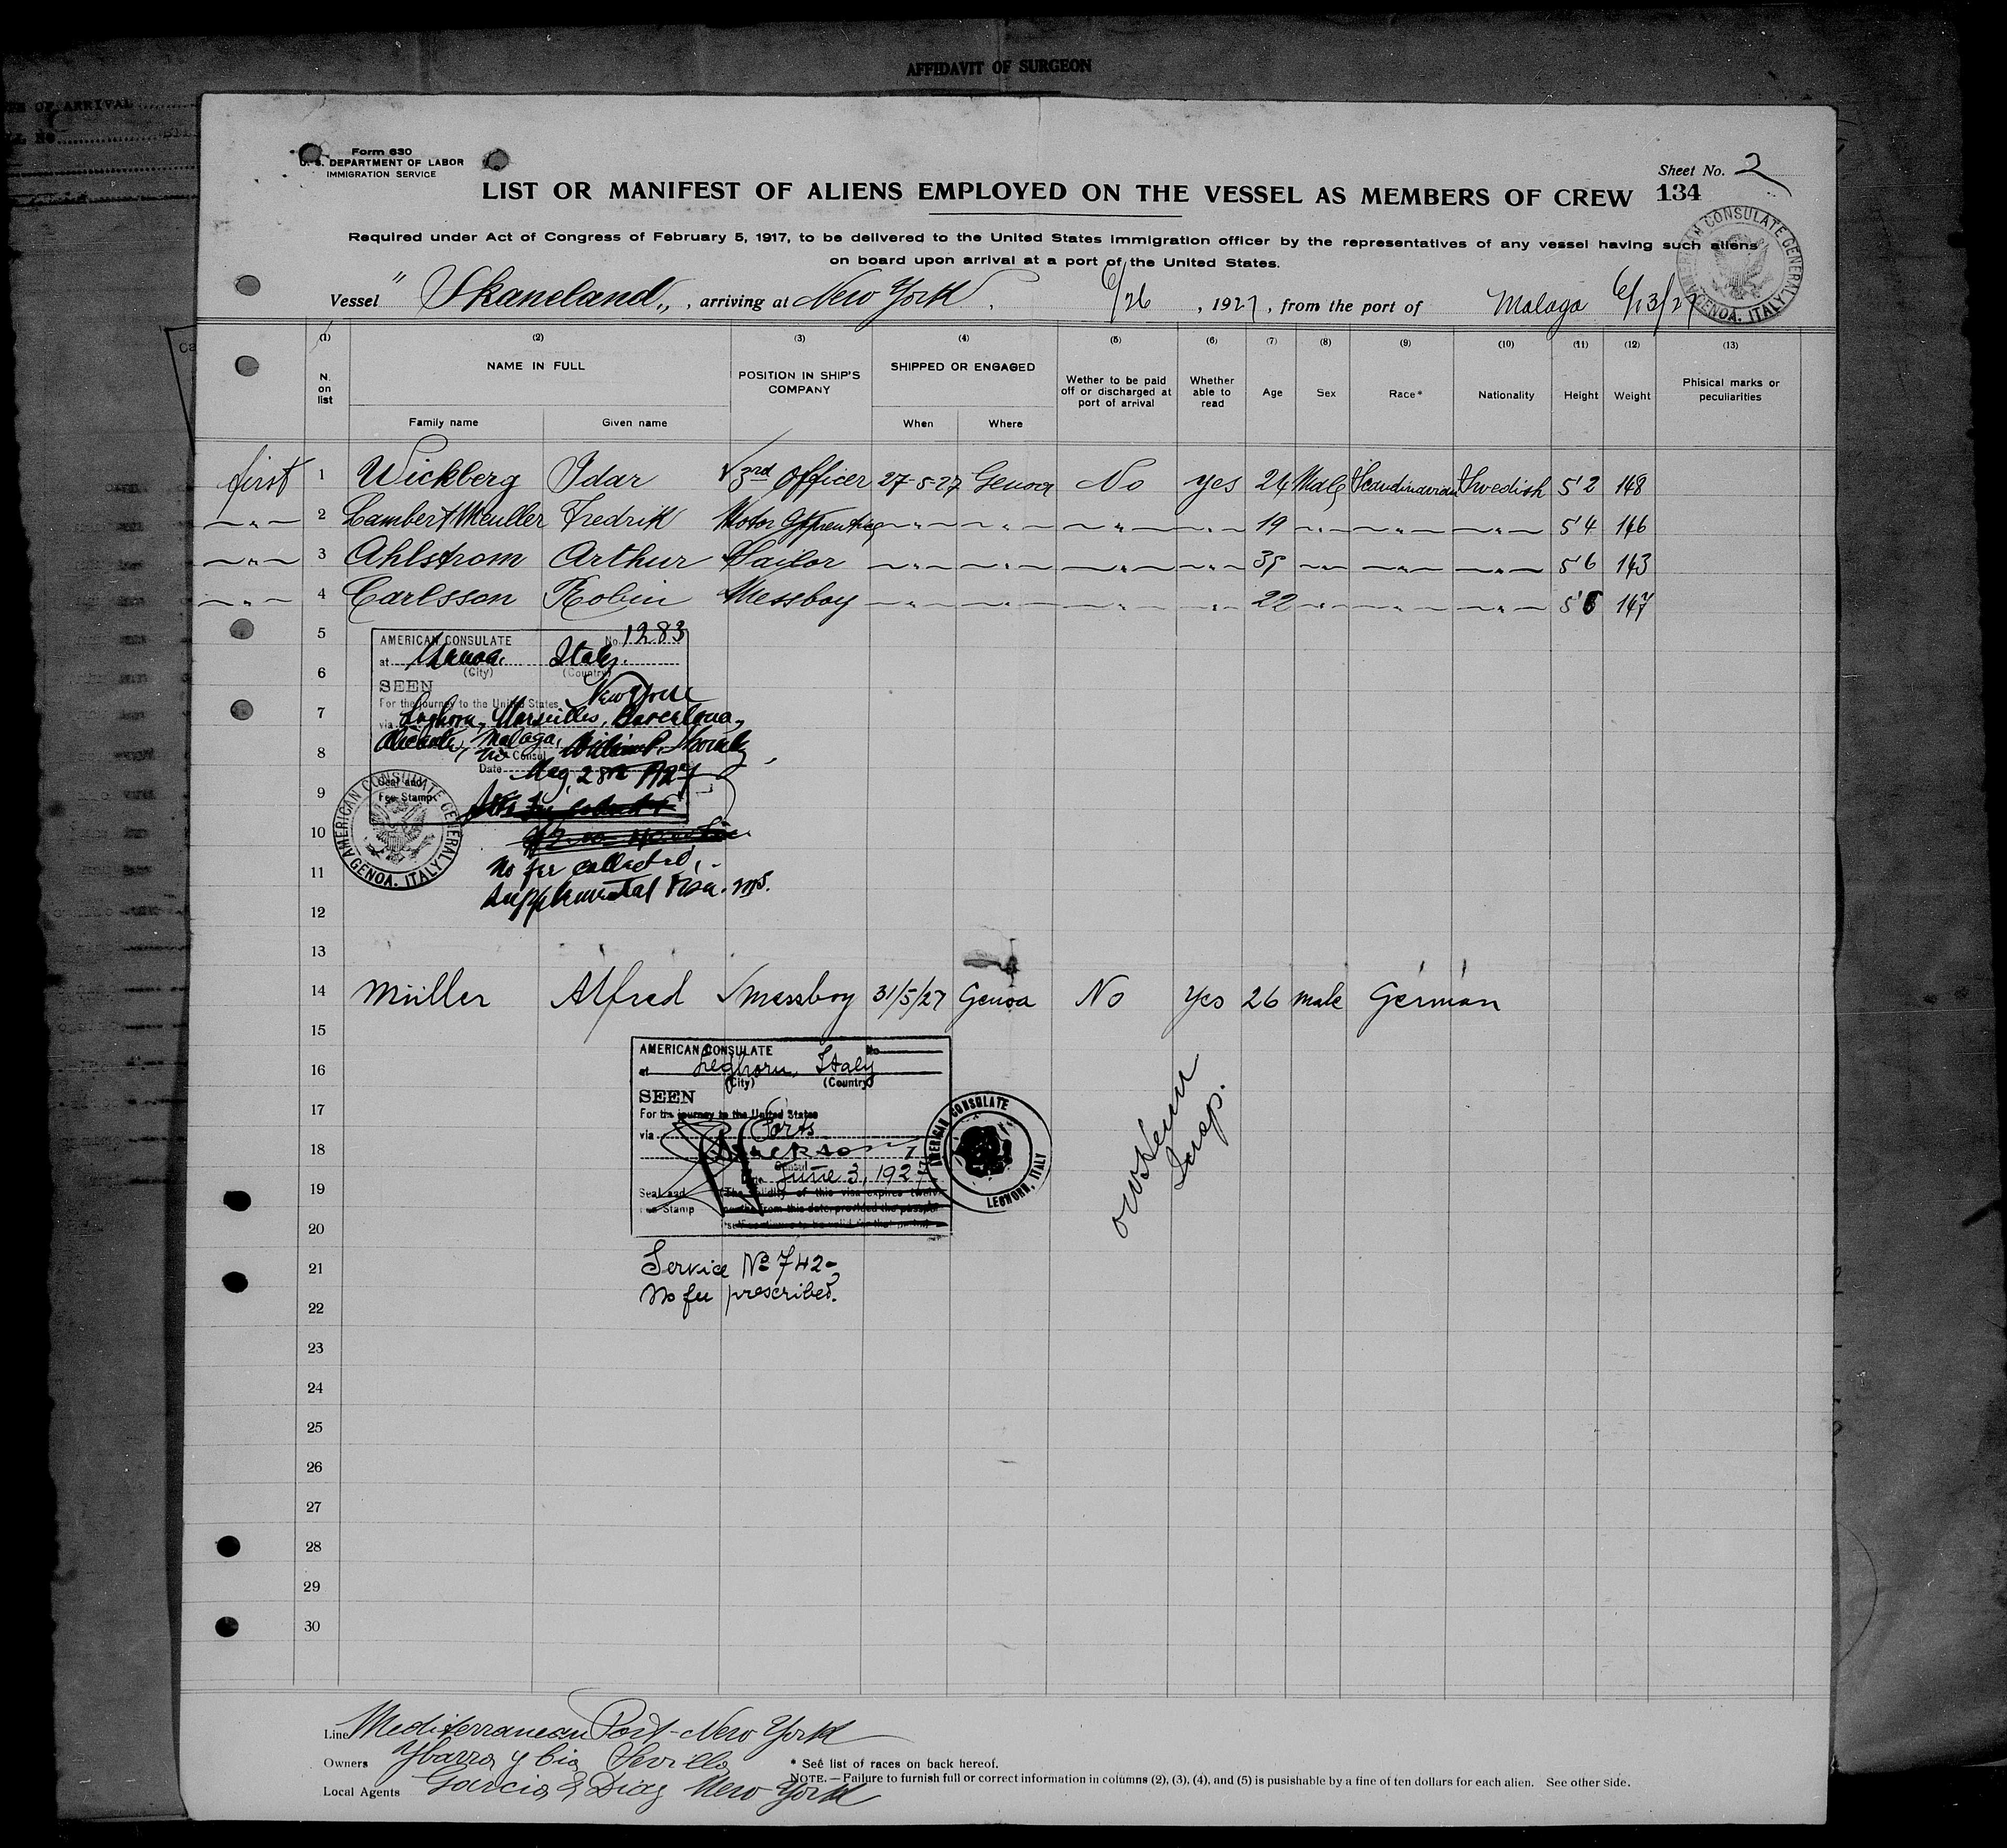 AFFIDAVIT OF SURGEON
OF ARRIVAL
Form 630
U. S. DEPARTMENT OF LABOR
IMMIGRATION SERVICE
Sheet No. 2
LIST OR MANIFEST OF ALIENS EMPLOYED ON THE VESSEL AS MEMBERS OF CREW 134
Required under Act of Congress of February 5, 1917, to be delivered to the United States immigration officer by the representatives of any vessel having such aliens
on board upon arrival at a port of the United States.
AMERICAN CONSULATE GENERAL GENOA. ITALY
Vessel "Skaneland", arriving at New York, 6/26, 1927, from the port of Malaga 6/13/27
(1) (2) (3) (4) (5) (6) (7) (8) (9) (10) (11) (12) (13)
N. on list NAME IN FULL POSITION IN SHIP'S COMPANY SHIPPED OR ENGAGED Wether to be paid off or discharged at port of arrival Whether able to read Age Sex Race* Nationality Height Weight Phisical marks or peculiarities
Family name Given name When Where
first 1 Wickberg Idar √ 3rd Officer 27-5-27 Genova No yes 26 Male Scandinavian Swedish 5'2 148
—"— 2 Lambert Meuller Fredrik Motor Apprentice —"— —"— —"— —"— 19 —"— —"— —"— 5'4 146
—"— 3 Ahlstrom Arthur Sailor —"— —"— —"— —"— 35 —"— —"— —"— 5'6 143
—"— 4 Carlsson Robin Messboy —"— —"— —"— —"— 22 —"— —"— —"— 5'6 147
5
AMERICAN CONSULATE No. 1283
at Genoa, Italy.
(City) (Country)
6
SEEN
For the journey to the United States New York
7
via Leghorn, Marseilles, Barcelona,
Alicante, Malaga,
8
Vice Consul
Date May 28th 1927
9
Seal and
Fee Stamp
AMERICAN CONSULATE GENERAL GENOA. ITALY
10
No fee collected,
11
Supplemental Visa.
12
13
14 Müller Alfred √ messboy 31/5/27 Genoa No Yes 26 male German
15
AMERICAN CONSULATE No
at Leghorn, Italy
(City) (Country)
16
SEEN
17
For the journey to the United States
via Ports
18
Consul
Date June 3, 1927
19
Seal and The validity of this visa expires twelve
Fee Stamp months from this date provided the passport
itself continues to be valid for that period
20
AMERICAN CONSULATE LEGHORN, ITALY
Insp.
21
Service No 742-
No fee prescribed.
22
23
24
25
26
27
28
29
30
Line Mediterranean Port - New York
Owners Ybarra y Cia Sevilla
* See list of races on back hereof.
NOTE. — Failure to furnish full or correct information in columns (2), (3), (4), and (5) is pusishable by a fine of ten dollars for each alien. See other side.
Local Agents Garcia & Diaz New York